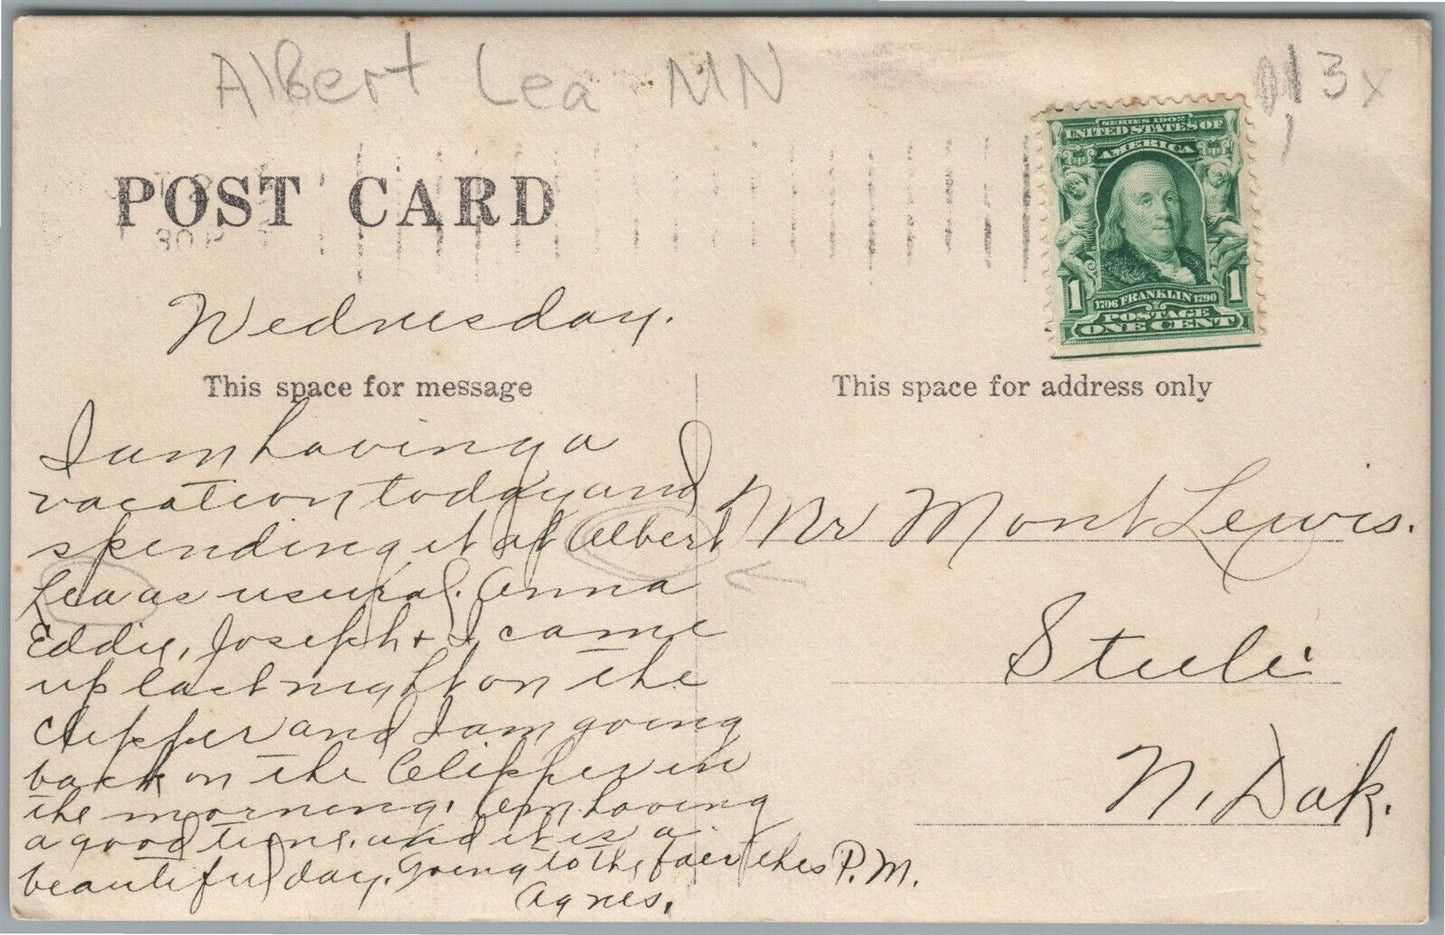 Albert Lea MN
13x
POST CARD
30 P
SERIES 1902
UNITED STATES OF
AMERICA
1 1
1706 FRANKLIN 1790
POSTAGE
ONE CENT
Wednesday.
This space for message
I am having a
vacation today and
spending it at Albert
Lea as usural. Anna
Eddie, Joseph + I came
up last night on the
clipper and I am going
back on the Clipper in
the morning. Am having
a good time. and it is a
beautiful day. Going to the fair this P.M.
Agnes.
This space for address only
Mr Mont Lewis.
Steele
N. Dak.